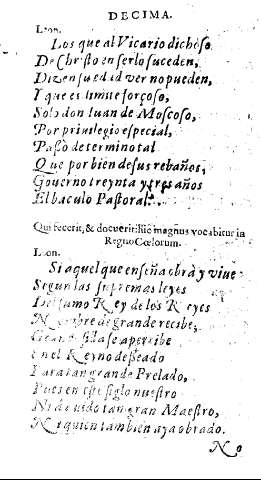 DECIMA.
Leon.
Los que al Vicario dichoso
De Christo en serlo suceden,
Dizen su edad ver no pueden,
I que es limite forçoso,
Solo don Iuan de Moscoso,
Por priuilegio especial,
Passò determino tal
Que por bien de sus rebaños,
Gouerno treynta y tres años
El baculo Pastoral.
Qui fecerit, & docuerit: hic magnus vocabitur in
Regno Cœlorum.
Leon.
Si aquel que enseña obra y viue
Segun las supremas leyes
Del samo Rey de los Reyes
Nombre de grande recibe,
silla se apercibe
en el Reyno desseado
Para tan grande Prelado,
Pues en este siglo nuestro
Ni à auido tan gran Maestro,
Ni quien tambien aya obrado.
No